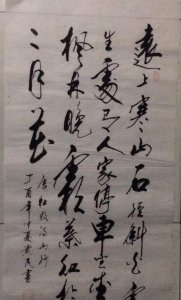 遠上寒山石徑斜白
生處有人家停車坐愛
楓林晚霜葉紅於
二月花
唐杜牧詩山行
丁酉年仲夏書